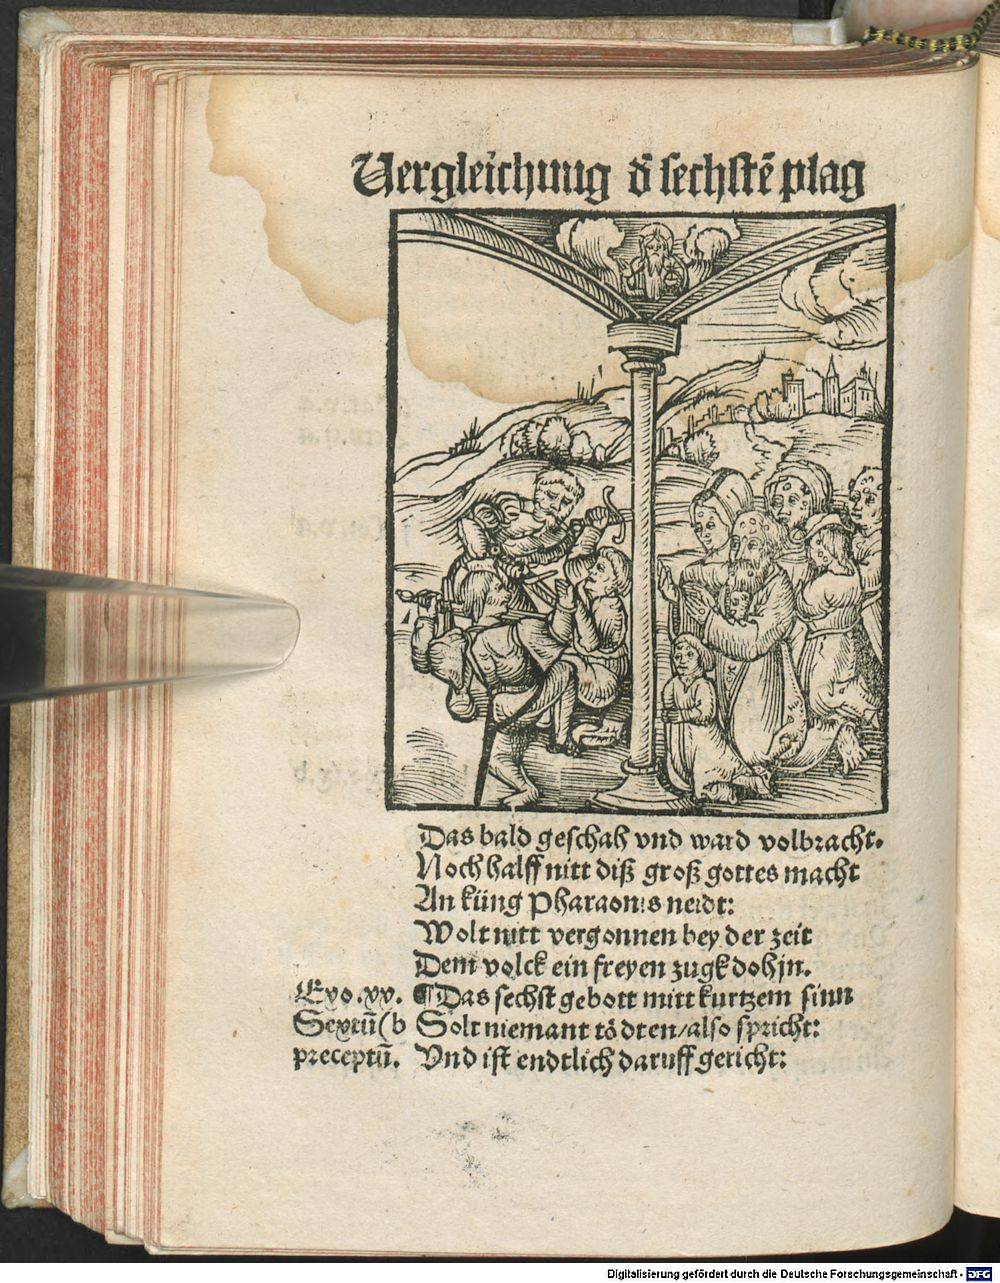 Vergleichung d̄ sechstē plag
Das bald geschah vnd ward volbracht.
Noch halff nitt diß groß gottes macht
An küng Pharaonis neidt:
Wolt nitt vergonnen bey der zeit
Dem volck ein freyen zugk dohjn.
Exo .xx. ¶Das sechst gebott mitt kurtzem sinn
Sextū (b Solt niemant tödten/also spricht:
preceptū. Vnd ist endtlich daruff gericht:
Digitalisierung gefördert durch die Deutsche Forschungsgemeinschaft - DFG